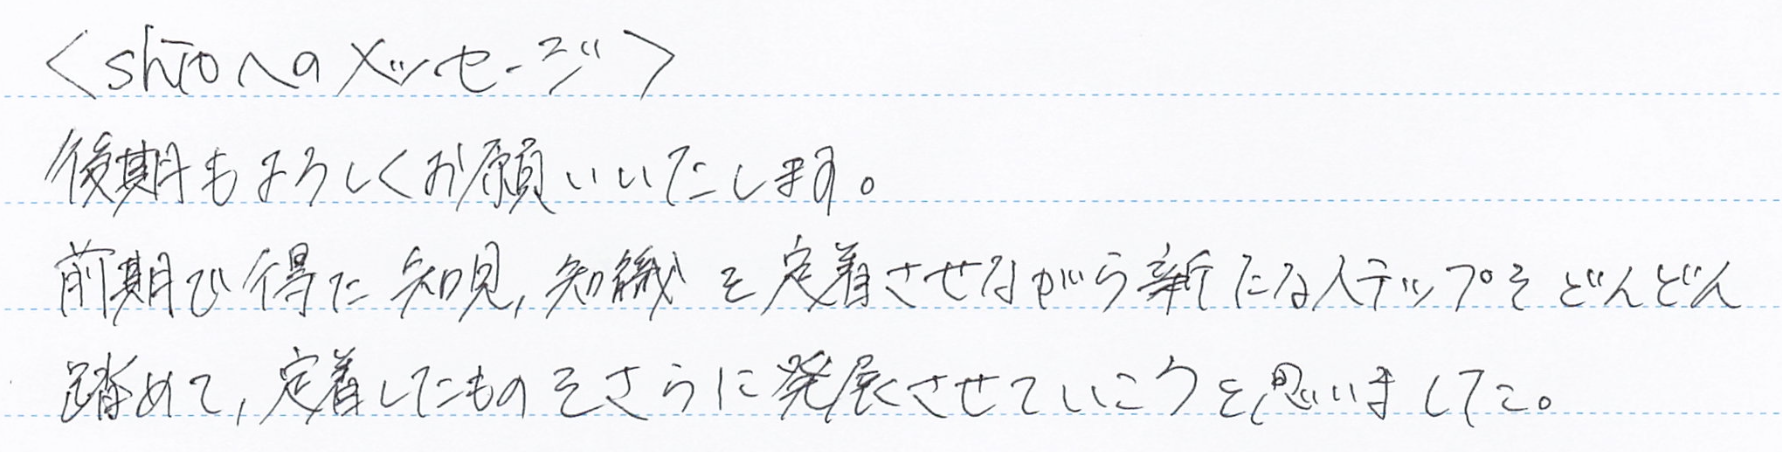 <shioへのメッセージ>
後期もよろしくお願いいたします。
前期で得た知見,知識を定着させながら新たなステップをどんどん
踏めて,定着したものをさらに発展させていこうと思いました。